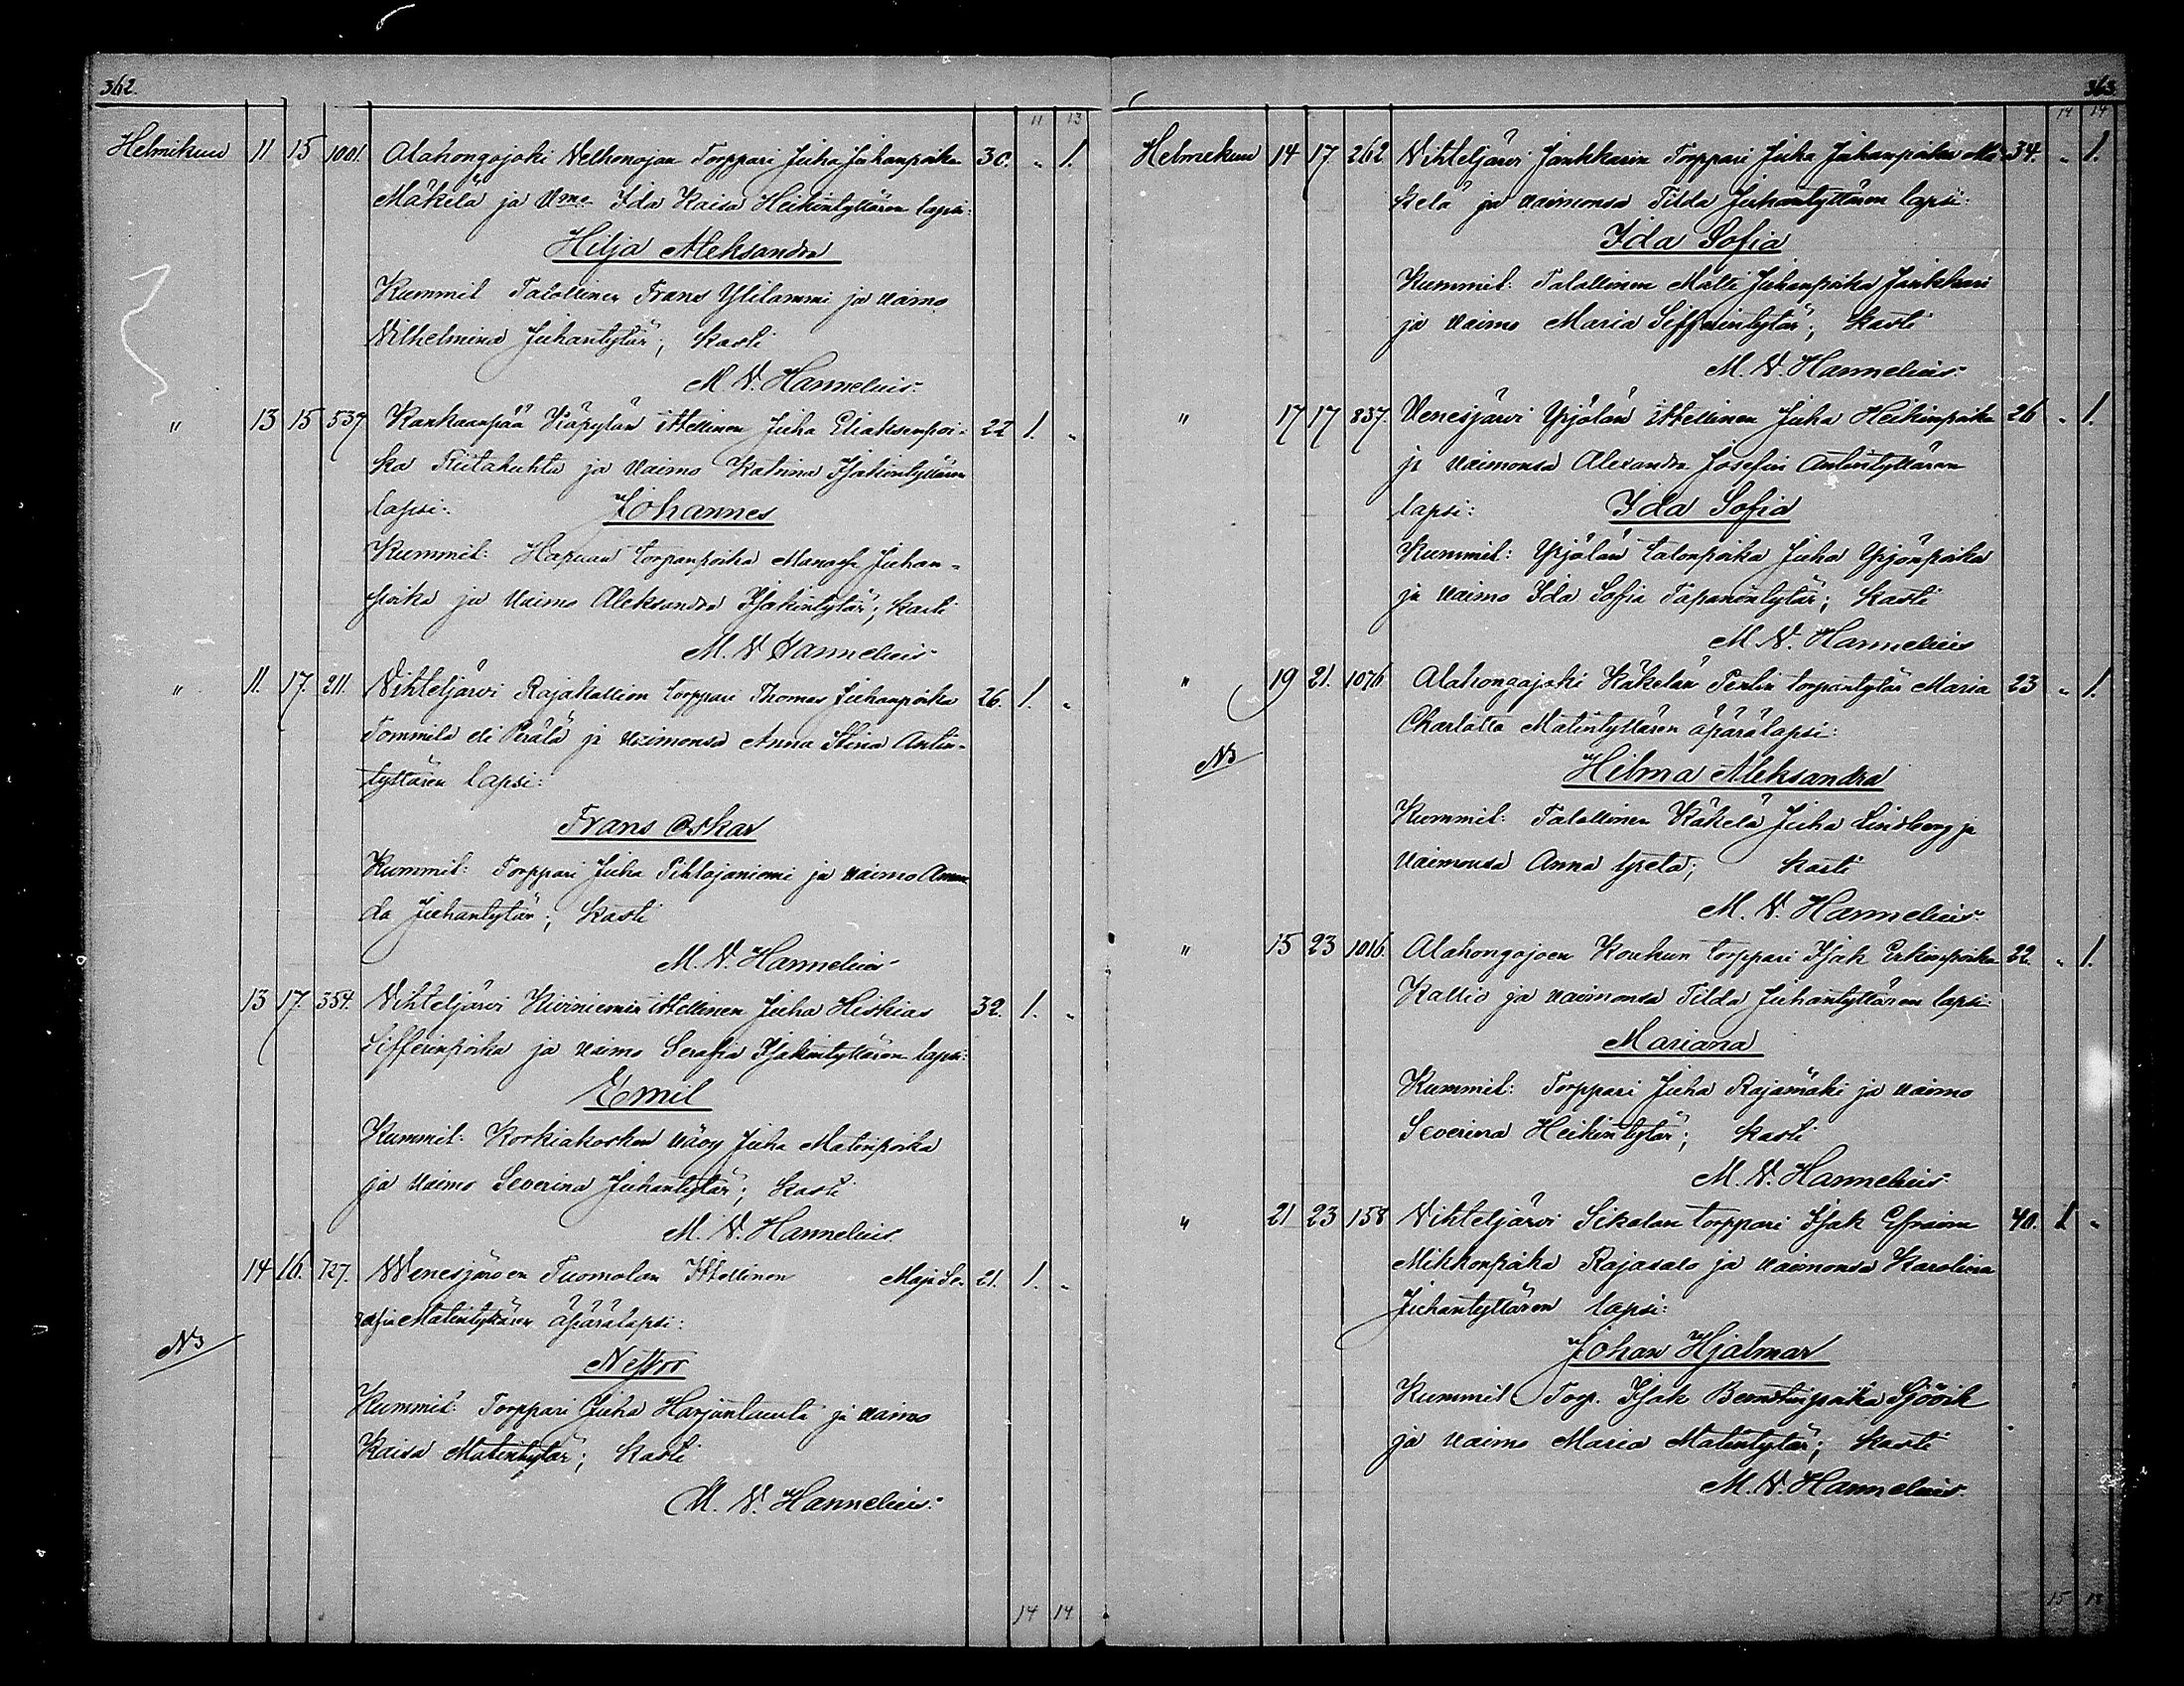 362.
11 13
Helmikuu 11 15 1001. Alahongojoki Velhonojan Torppari Juha Juhanpoika 30. " 1.
Mäkelä ja Vmo Ida Kaisa Heikintyttären lapsi:
Hilja Aleksandra
Kummit Talollinen Frans Ylilammi ja vaimo
Vilhelmina Juhantytär; Kasti
M. V. Hannelius.
" 13 15 537 Kankaanpää Käpylän ittellinen Juha Eliaksenpoi- 22 1. "
ka Riitahuhta ja Vaimo Katrina Isakintyttären
lapsi: Johannes
Kummit: Hapuan torpanpoika Manasse Juhan-
poika ja Vaimo Aleksandra Isakintytär; Kasti
M. V Hannelius
" 11. 17. 211. Vihteljärvi Rajakallion torppari Thomas Juhanpoika 26. 1. "
Tommila eli Perälä ja vaimonsa Anna Stina Antin-
tyttären lapsi:
Frans Oskar
Kummit: Torppari Juha Pihlajaniemi ja vaimo Aman
da Juhantytär; Kasti
M. V. Hannelius
13 17. 354. Vihteljärvi Kiviniemin ittellinen Juha Hiskias 32. 1. "
Sifferinpoika ja vaimo Serafia Isakintyttären lapsi:
Emil
Kummit: Korkiakosken vävy Juha Matinpoika
ja vaimo Severina Juhantytär; Kasti
M. V. Hannelius.
14 16. 727. Wenesjärven Tuomolan Ittellinen Maja Se- 21. 1. "
rafia Matintyttären äpärälapsi:
NB
Nestor
Kummit: Torppari Juha Harjuntausta ja vaimo
Kaisa Matintytär; Kasti
M. V. Hannelius.
14 14
363
14 14
Helmikuu 14 17 262 Vihteljärvi Jankkarin Torppari Juha Juhanpoika Mä 34. " 1.
kelä ja vaimonsa Tilda Juhantyttären lapsi:
Ida Sofia
Kummit: Talollinen Matti Juhanpoika Jankkari
ja vaimo Maria Sifferintytär; Kasti
M. V. Hannelius.
" 17 17 837. Venesjärvi Yrjölän ittellinen Juha Heikinpoika 26 " 1.
ja vaimonsa Alexandra Josefin Antintyttären
lapsi: Ida Sofia
Kummit: Yrjölän talonpoika Juha Yrjönpoika
ja vaimo Ida Sofia Tapanintytär; Kasti
M. V. Hannelius
" 19 21. 1076 Alahongojoki Käkelän Perlin torpantytär Maria 23 " 1.
Charlotta Matintyttären äpärälapsi:
NB
Hilma Aleksandra
Kummit: Talollinen Käkelä Juha Lindberg ja
vaimonsa Anna Greta; Kasti
M. V. Hannelius.
" 15 23 1016. Alahongojoen Koukun torppari Isak Erkinpoika 22. " 1.
Kallio ja vaimonsa Tilda Juhantyttären lapsi:
Mariana
Kummit: Torppari Juha Rajamäki ja vaimo
Severina Heikintytär; Kasti
M. V. Hannelius.
" 21 23 158 Vihteljärvi Sikalan torppari Isak Efraim 40. 1 "
Mikkonpoika Rajasalo ja vaimonsa Karolina
Juhantyttären lapsi:
Johan Hjalmar
Kummit Torp. Isak Sjövik
ja vaimo Maria Matintytär; Kasti
M. V. Hannelius.
15